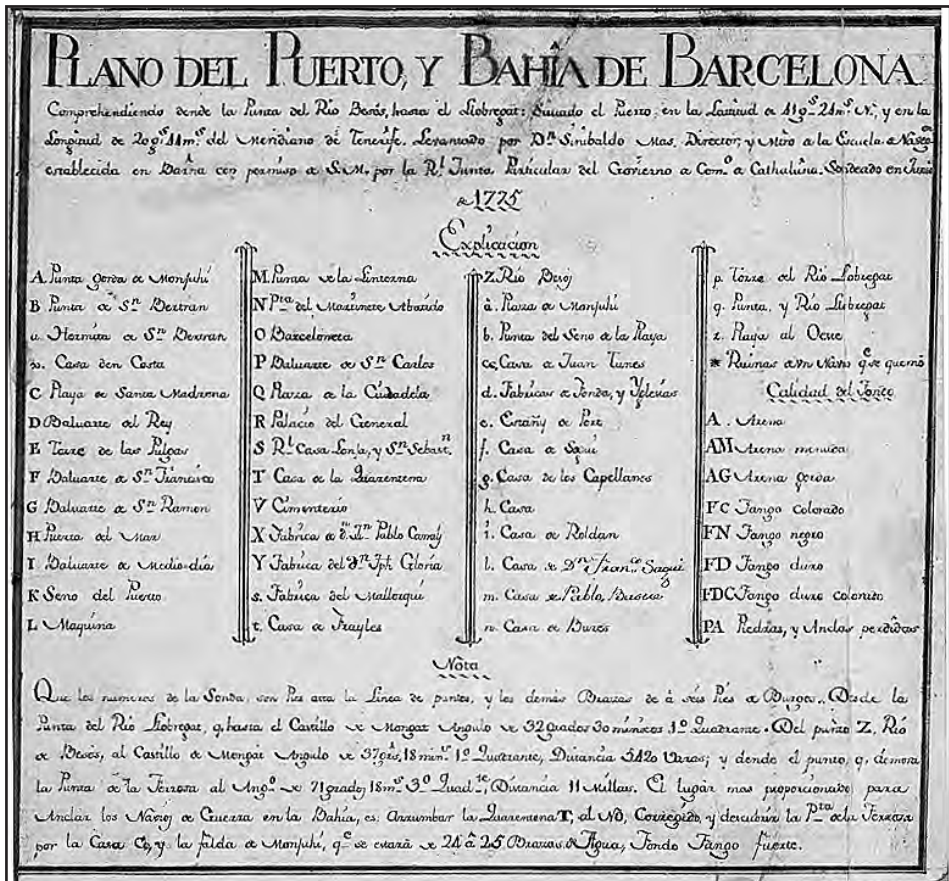 PLANO DEL PUERTO, Y BAHÍA DE BARCELONA.
Comprehendiendo desde la Punta del Río Besós, hasta el Llobregat: Situado el Puerto en la Latitud de 41g.s 21m.s N., y en la
Longitud de 20g.s 11m.s del Meridiano de Tenerife. Levantado por D.n Sinibaldo Mas, Director, y Mtro a la Escuela de
establecida en Barña con permiso de S.M. por la R.l Junta Particular del Govierno de Com.o a Cathaluña. Sondeado en
de 1775
Explicacion
A Punta gorda de Monjuhi
B Punta de S.n Bertran
u. Hermita de S.n Bertran
Casa den Costa
C Playa de Santa Madrona
D Baluarte del Rey
E Torre de las Pulgas
F Baluarte de S.n Francisco
G Baluarte de S.n Ramon
H Puerta del Mar
I Baluarte de Medio-dia
K Seno del Puerto
L Maquina
M. Punta de la Linterna
N P.ta del Martinete
O Barceloneta
P Baluarte de S.n Carlos
Q Plaza de la Ciudadela
R Palacio del General
S R.l Casa Lonja, y S.n Sebast.n
T Casa de la Quarentena
V Cimenterio
X Fabrica de Pablo
Y Fabrica del Jph Gloria
s. Fabrica del Mallorqui
t. Casa de Frayles
Z. Río Besós
a. Plaza de Monjuhi
b. Punta del Seno de la Playa
Casa de Juan Tunes
d. Fabricas de Tonda, y Yglesias
e. Estañy de Port
f. Casa de
g. Casa de los Capellanes
h. Casa
i. Casa de Roldan
l. Casa de D.n Fran.co Sagui
m. Casa de Pablo
n. Casa de Bures
p. Torre del Río Lobregat
q. Punta, y Río Llobregat
z. Playa al Oeste
* Ruinas de un Navio q.e se quemó
Calidad del Fondo
A. Arena
AM Arena menuda
AG Arena gorda
FC Fango colorado
FN Fango negro
FD Fango duro
FDC Fango duro colorado
PA Piedras, y Anclas perdidas
Nota
Que los numeros de la Sonda, son Pies asta la Linea de puntos, y los demás Brazas de á seis Pies de Burgos.. Desde la
Punta del Río Llobregat, q, hasta el Castillo de Mongat Angulo de 32 grados 30 minutos 1.o Quadrante. Del punto Z, Río
de Besós, al Castillo de Mongat Angulo de 37 18 min.s 1.o Quadrante, Distancia 5420 Varas; y desde el punto, q, demora
la Punta de la Ferrosa al Ang.o de 71 grados 18m.s 3.o Quad.te, Distancia 11 Millas. El lugar mas proporcionado para
Anclar los Navios de Guerra en la Bahía, es Arrumbar la Quarentena T, al NO, Corregido, y descubrir la P.ta de la Ferrosa
por la Casa y la falda de Monjuhi, q.e se estará de 24 á 25 Brazas de Agua, Fondo Fango fuerte.